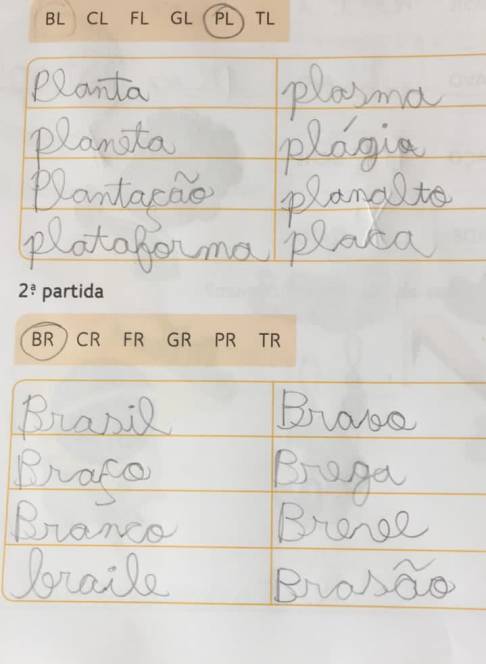 BL CL FL GL PL TL
Planta plasma
planeta plágio
Plantação planalto
plataforma placa
2ª partida
BR CR FR GR PR TR
Brasil Bravo
Braço Brega
Branco Breve
braile Brasão